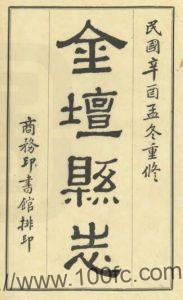 民國辛酉孟冬重修
金壇縣志
商務印書館排印
www.100fc.com